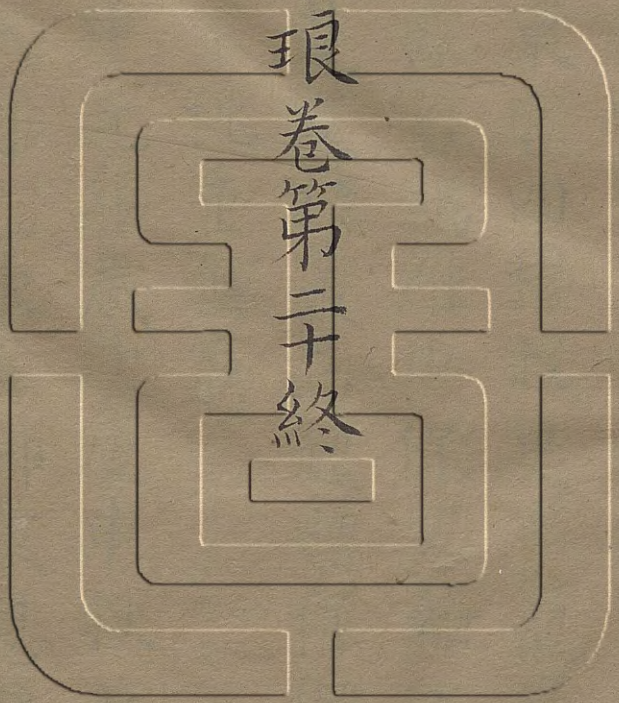 琅卷第二十終